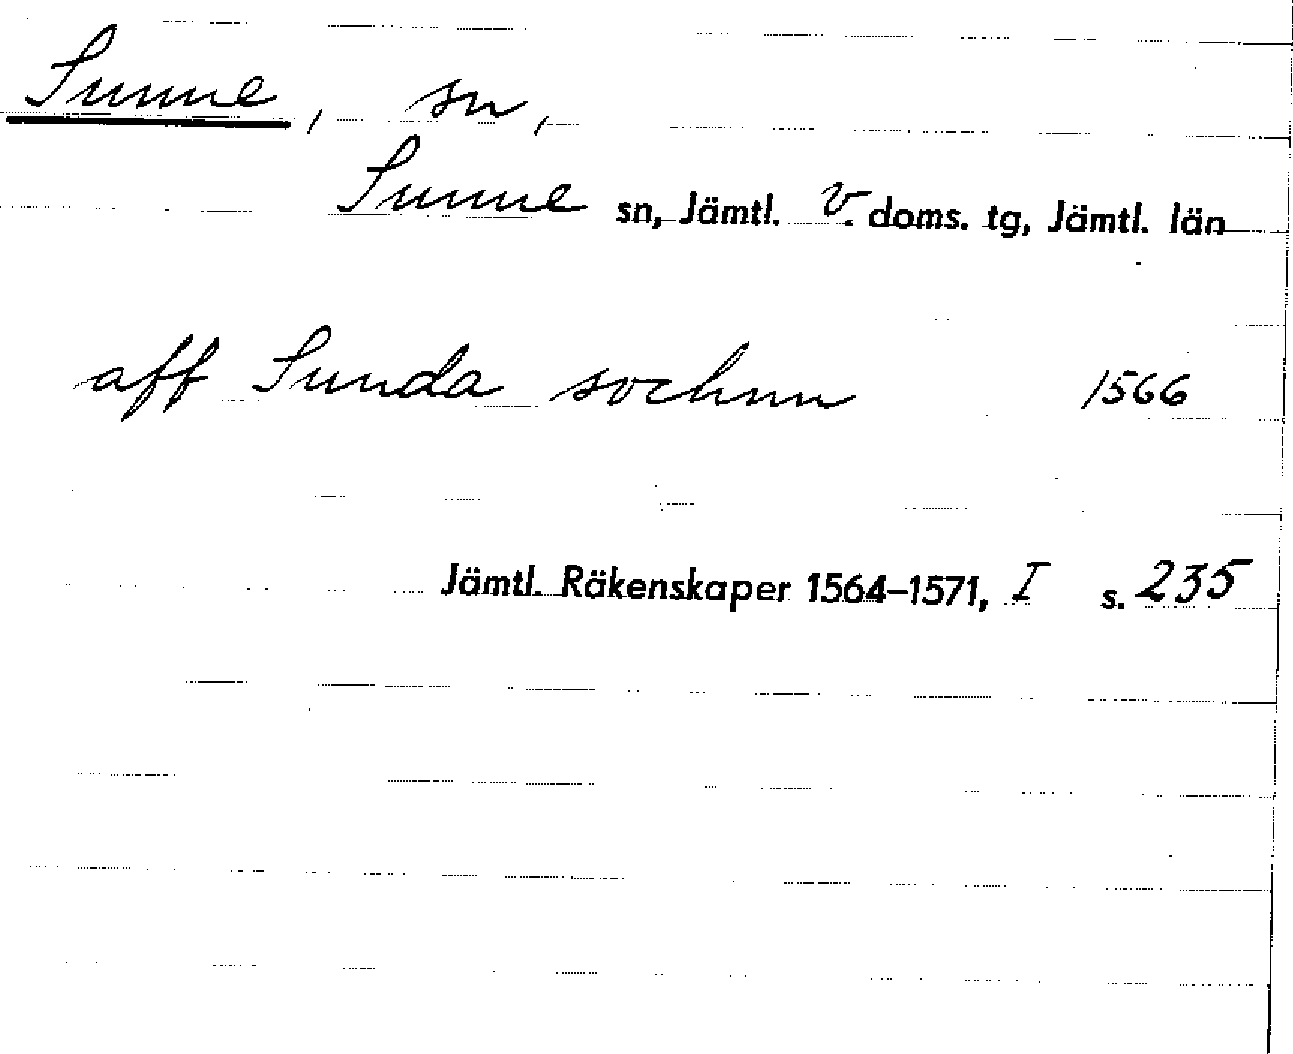 Sunne, sn,
Sunne sn, Jämtl. v. doms. tg, Jämtl. län
aff Sunda sochnn 1566
Jämtl. Räkenskaper 1564–1571, I s. 235